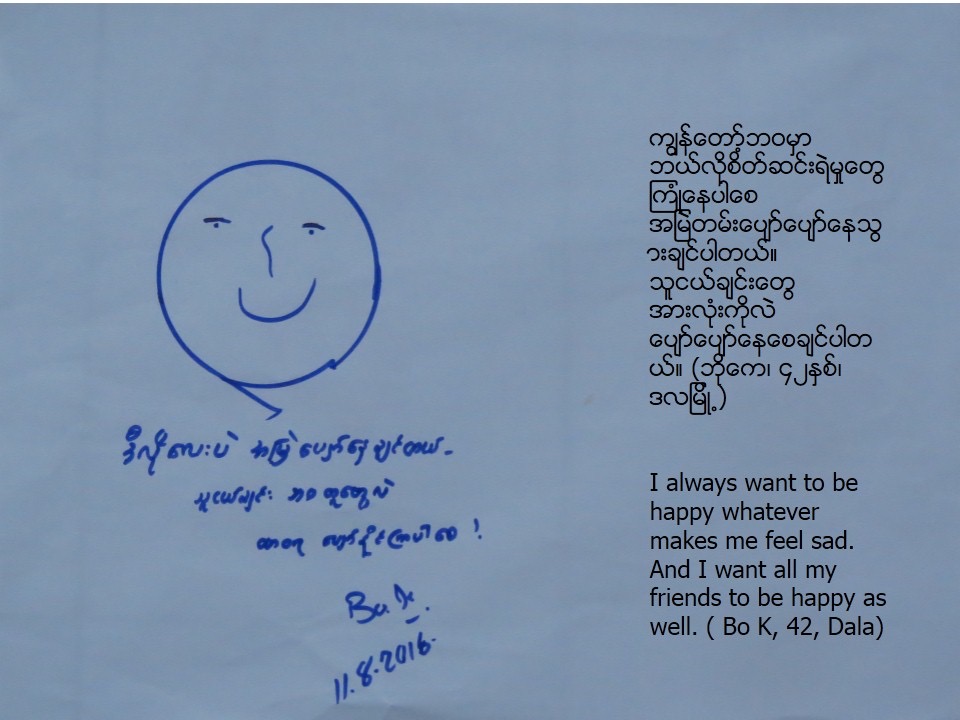 ဒီလိုလေးပဲ အမြဲပျော်နေချင်တယ်-
သူငယ်ချင်း ဘဝတူတွေလဲ
ထာဝရ ပျော်နိုင်ကြပါစေ !
Bo. K.
11.8.2016.
ကျွန်တော့်ဘဝမှာ
ဘယ်လိုစိတ်ဆင်းရဲမှုတွေ
ကြုံနေပါစေ
အမြဲတမ်းပျော်ပျော်နေသွ
ားချင်ပါတယ်။
သူငယ်ချင်းတွေ
အားလုံးကိုလဲ
ပျော်ပျော်နေစေချင်ပါတ
ယ်။ (ဘိုကေ၊ ၄၂နှစ်၊
ဒလမြို့)
I always want to be
happy whatever
makes me feel sad.
And I want all my
friends to be happy as
well. ( Bo K, 42, Dala)